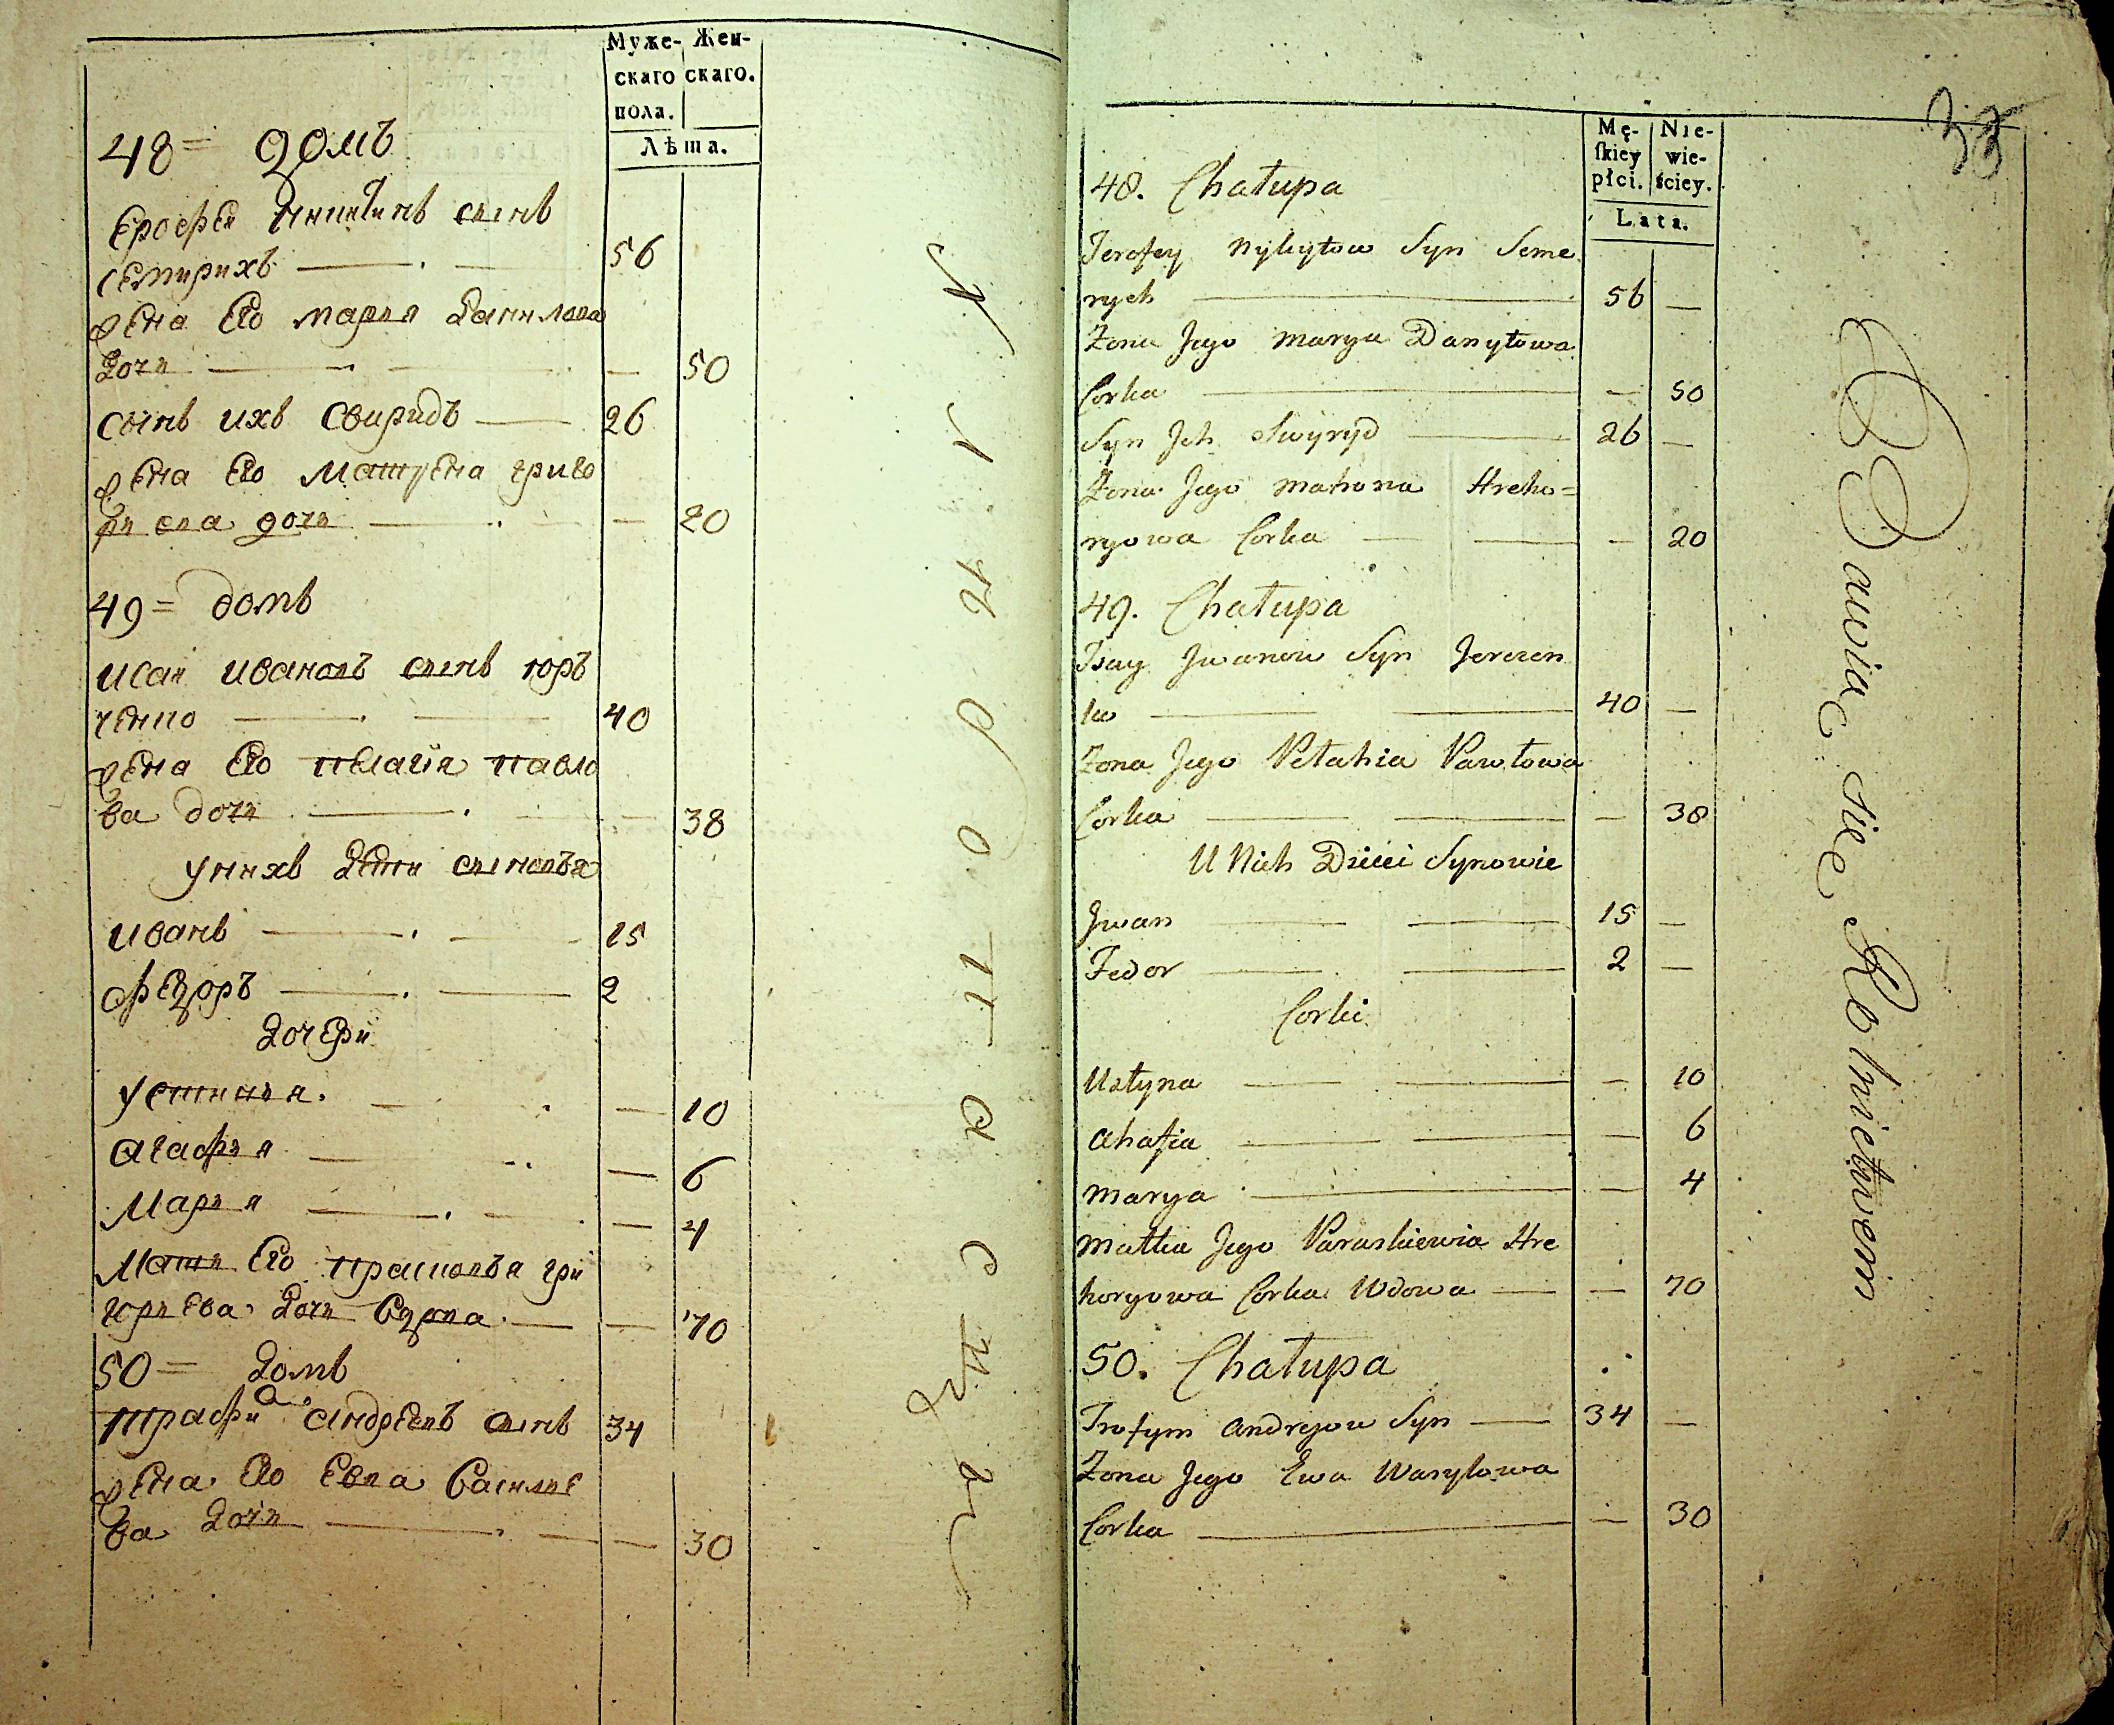 Муже-
скаго
пола.
Жен-
скаго.
Лѣта.
48 = домъ
Ерофеи Никитинъ сынъ
семирихъ 56
жена Его марья Данилова
Дочь — 50
сынъ ихъ Свиридъ 26
жена Его Матрена григо
рьева дочь — 20
49 = домъ
исаи ивановъ сынъ юръ
ченко 40
жена Его пелагия павло
ва дочь — 38
у нихъ Дети сыновья
иванъ 15
федоръ 2
Дочери
Устинья. — 10
агафья — 6
Марья — 4
Мать Его прасковья гри
горьева Дочь вдова — 70
50 = Домъ
трафи андреевъ сынъ 34
жена Его Евва василье
ва Дочь — 30
33
Mę-
skiey
płci.
Nie-
wie-
ściey.
Lata.
48. Chałupa
Jerofey Nykytow Syn Seme
rych 56 —
Zona Jego Marya Danyłowa
Corka — 50
Syn Jch Swyryd 26 —
Zona Jego Matrona Hreho=
ryowa Corka — 20
49. Chałupa
Isay Jwanow Syn Jurczen
ko 40 —
Zona Jego Pełahia Pawłowa
Corka — 38
U Nich Dzieci Synowie
Jwan 15 —
Fedor 2 —
Corki
Ustyna — 10
Ahafia — 6
Marya — 4
Matka Jego Paraskiewia Hre
horyowa Corka Wdowa — 70
50. Chałupa
Trofym Andrejow Syn 34 —
Zona Jego Ewa Wasylowa
Corka — 30
Bawiąc się Rolnictwem